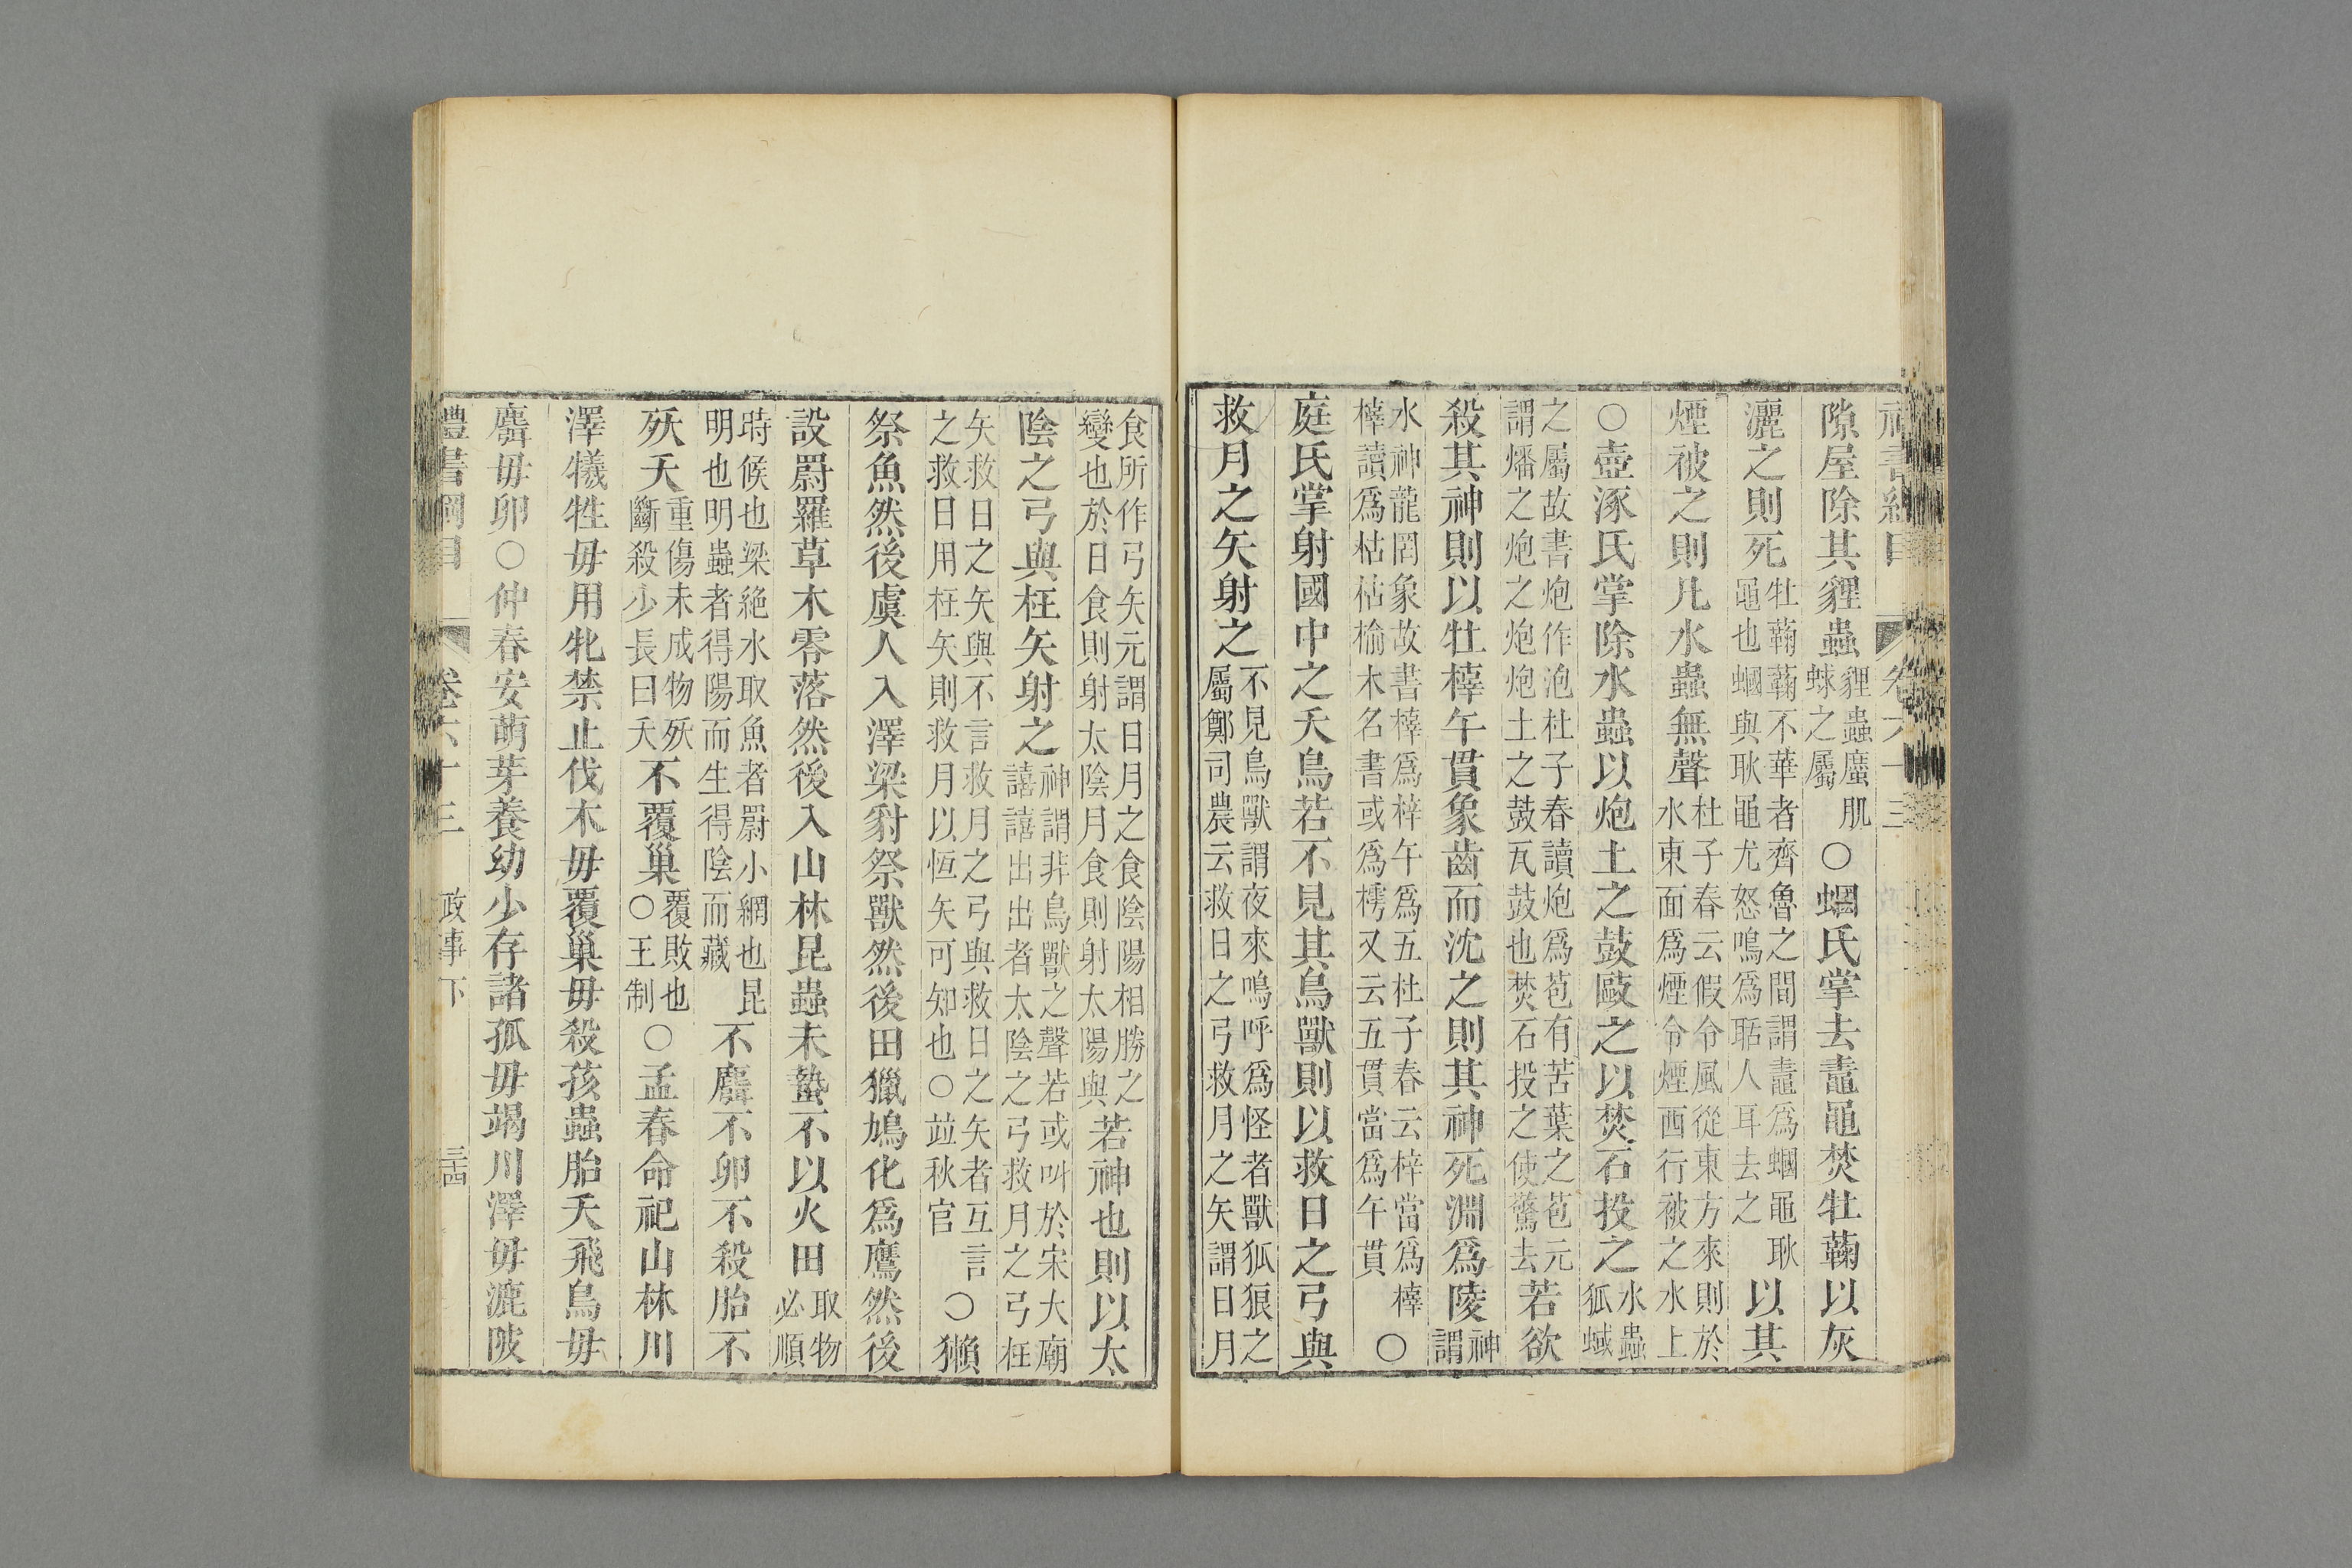 隙屋除其貍蟲貍蟲䗪肌蛷之屬○蟈氏掌去鼃黽焚牡蘜以灰
灑之則死牡蘜蘜不華者齊魯之間謂鼃爲蟈黽耿黽也蟈與耿黽尤怒鳴爲聒人耳去之以其
煙被之則凡水蟲無聲杜子春云假令風從東方來則於水東面爲煙令煙西行被之水上
○壺涿氏掌除水蟲以炮土之鼓敺之以焚石投之水蟲狐蜮
之屬故書炮作泡杜子春讀炮爲苞有苦葉之苞元謂燔之炮之炮炮土之鼓瓦鼓也焚石投之使驚去若欲
殺其神則以牡橭午貫象齒而沈之則其神死淵爲陵神謂
水神龍罔象故書橭爲梓午爲五杜子春云梓當爲橭橭讀爲枯枯榆木名書或爲樗又云五貫當爲午貫○
庭氏掌射國中之夭鳥若不見其鳥獸則以救日之弓與
救月之矢射之不見鳥獸謂夜來鳴呼爲怪者獸狐狼之屬鄭司農云救日之弓救月之矢謂日月
食所作弓矢元謂日月之食陰陽相勝之變也於日食則射太陰月食則射太陽與若神也則以太
陰之弓與枉矢射之神謂非鳥獸之聲若或叫於宋大廟譆譆出出者太陰之弓救月之弓枉
矢救日之矢與不言救月之弓與救日之矢者互言之救日用枉矢則救月以恆矢可知也○竝秋官○獺
祭魚然後虞人入澤梁豺祭獸然後田獵鳩化爲鷹然後
設罻羅草木零落然後入山林昆蟲未蟄不以火田取物必順
時候也梁絶水取魚者罻小網也昆明也明蟲者得陽而生得陰而藏不麛不卵不殺胎不
殀夭重傷未成物殀斷殺少長曰夭不覆巢覆敗也○王制○孟春命祀山林川
澤犧牲毋用牝禁止伐木毋覆巢毋殺孩蟲胎夭飛鳥毋
麛毋卵○仲春安萌芽養幼少存諸孤毋竭川澤毋漉陂
禮書綱目 卷六十三 政事下 三四